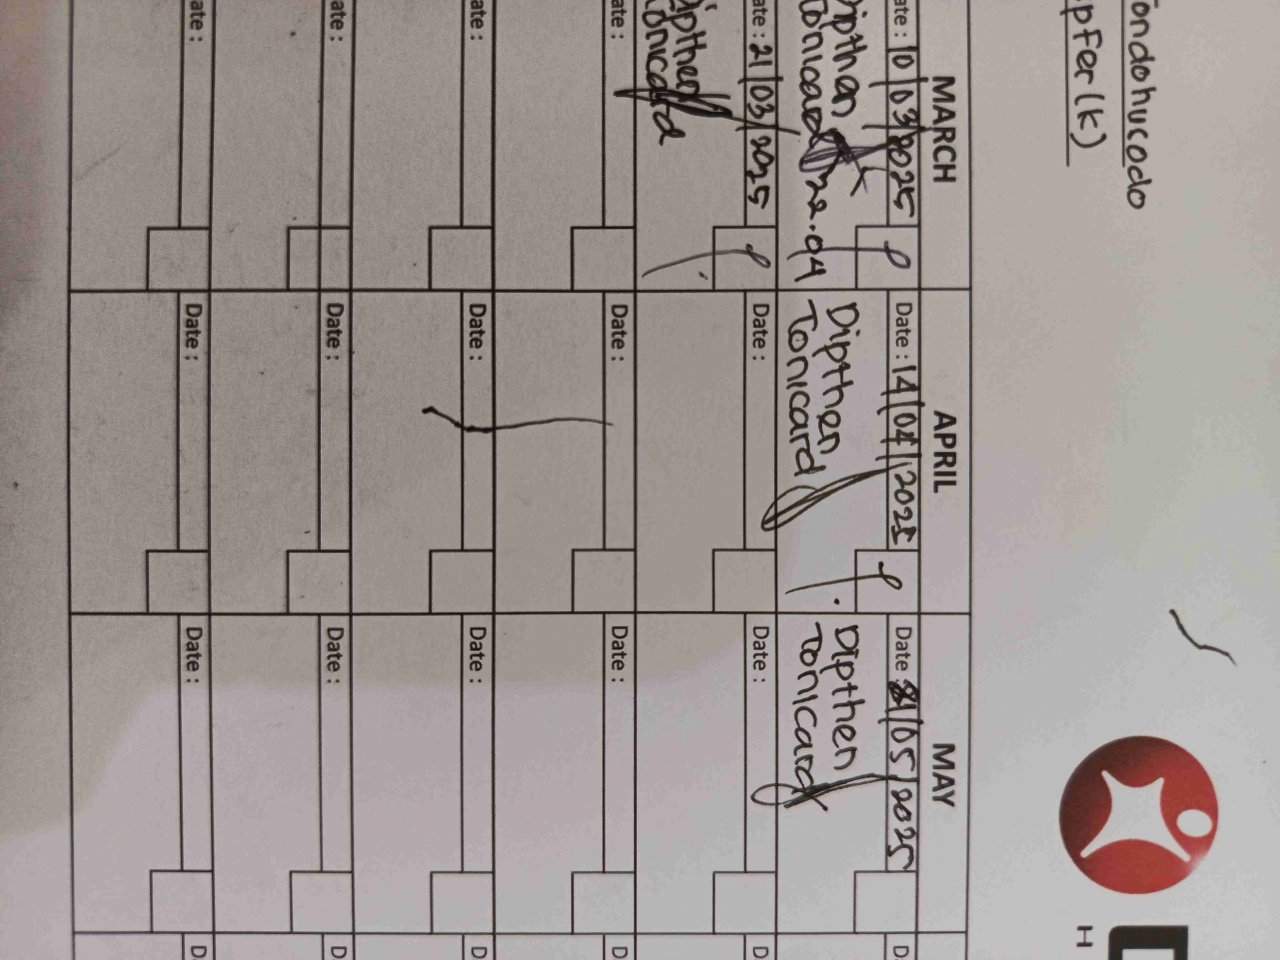 ondohucodo
pfer(k)
H
MARCH
APRIL
MAY
ate : 10/03/2025
Date : 14/04/2025
Date 21/05/2025
D
ipthen
Tonicard 22.04
Dipthen
Tonicard
Dipthen
Tonicard
ate : 21/03/2025
Date :
Date :
ipthen
Tonicard
ate :
Date :
Date :
ate :
Date :
Date :
D
ate :
Date :
Date :
D
ate :
Date :
Date :
D